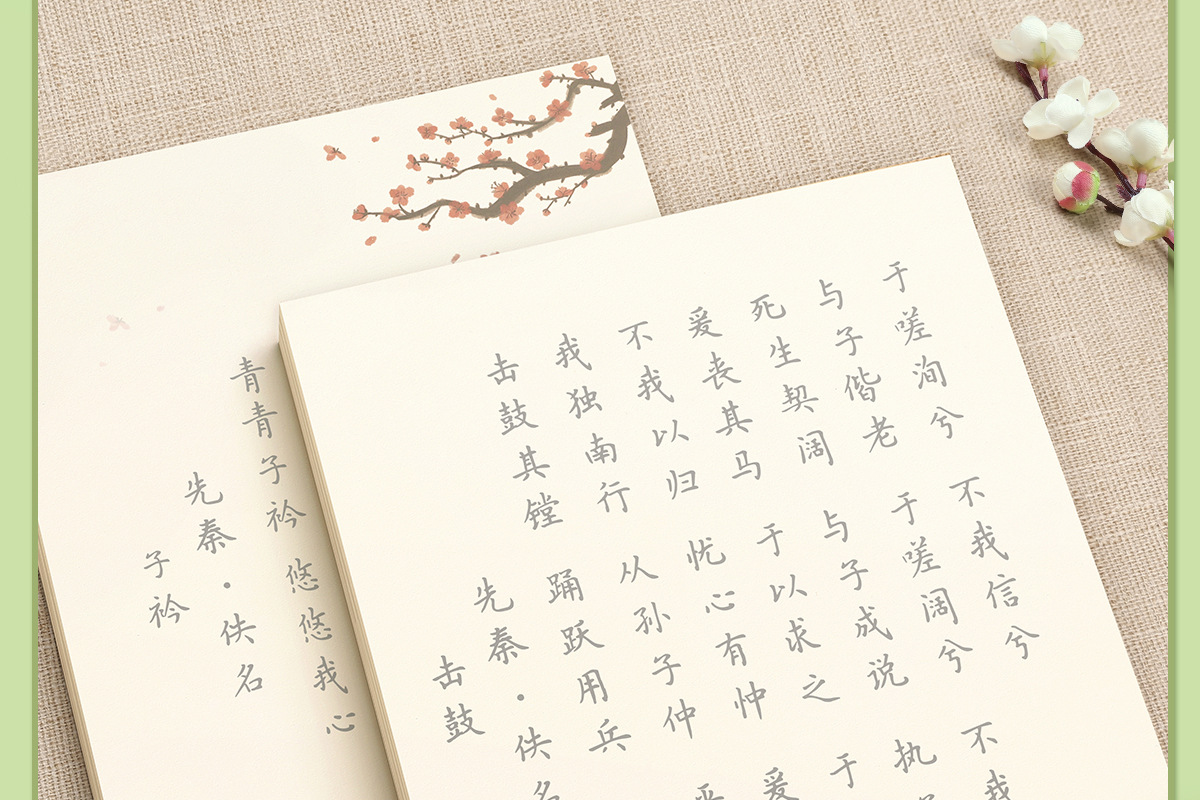 子衿
先秦·佚名
青青子衿 悠悠我心
击鼓
先秦·佚名
击鼓其镗 踊跃用兵
我独南行 从孙子仲
不我以归 忧心有忡 爰
爰丧其马 于以求之 于
死生契阔 与子成说 执
与子偕老 于嗟阔兮 不我
于嗟洵兮 不我信兮